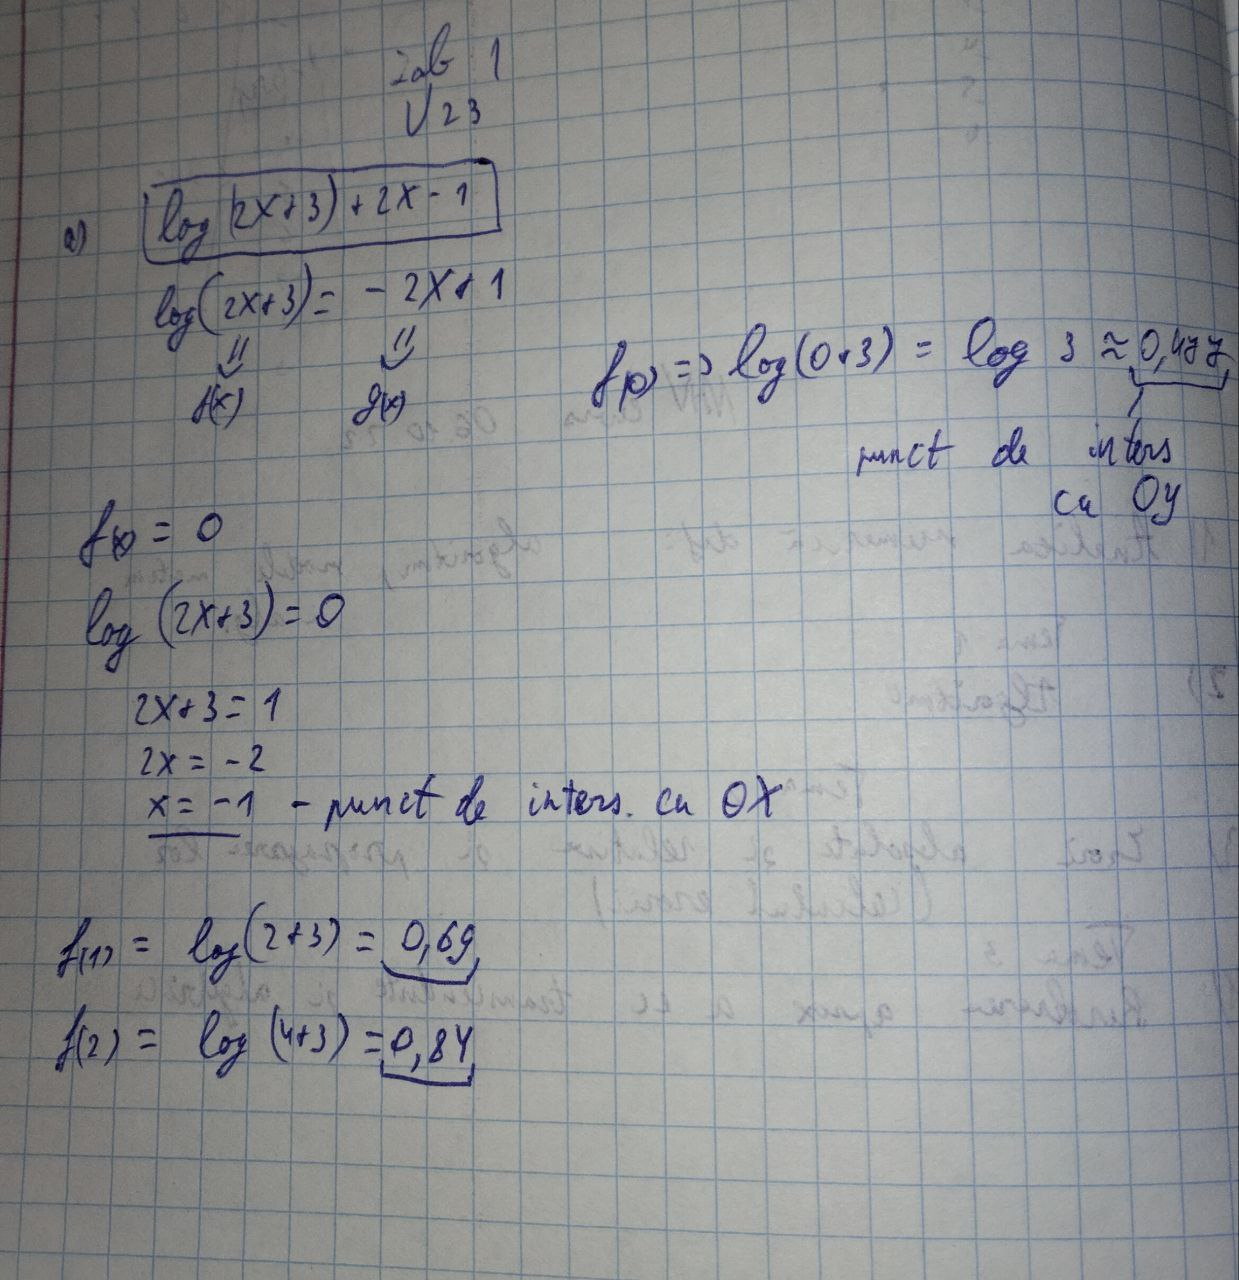 Lab 1
V23
a) log(2x+3)+2x-1
log(2x+3) = -2x+1
f(x) g(x)
f(0) => log(0+3) = log 3 ≈ 0,477
punct de inters
cu Oy
f(x) = 0
log (2x+3) = 0
2x+3 = 1
2x = -2
x = -1 - punct de inters. cu OX
f(1) = log(2+3) = 0,69
f(2) = log (4+3) = 0,84